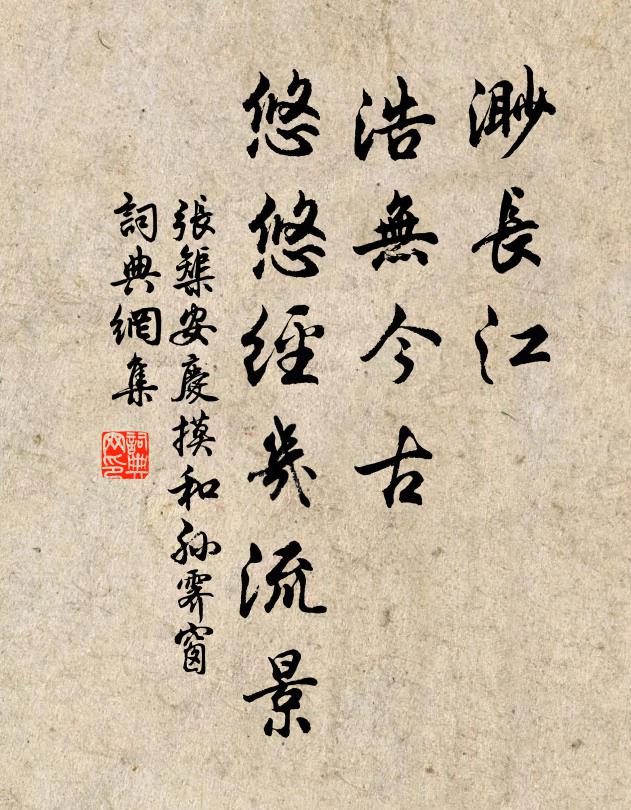 渺長江
浩無今古
悠悠經幾流景
張榘安慶摸和孙霽窗
詞典網集
詞典網印